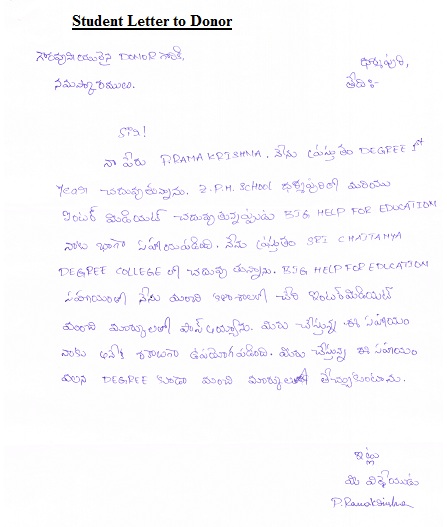 Student Letter to Donor
గౌరవనీయులైన DONOR గారికి,
ధర్మపురి,
నమస్కారములు.
తేది:-
సార్!
నా పేరు P.RAMAKRISHNA. నేను ప్రస్తుతం DEGREE 1st
Year చదువుతున్నాను. Z.P.H. SCHOOL ధర్మపురిలో మరియు
ఇంటర్ మీడియట్ చదువుతున్నప్పుడు BJG HELP FOR EDUCATION
నాకు బాగా సహాయపడింది. నేను ప్రస్తుతం SRI CHAITANYA
DEGREE COLLEGE లో చదువుతున్నాను. BJG HELP FOR EDUCATION
సహాయంతో నేను మంచి కళాశాలలో చేరి ఇంటర్మీడియట్
మంచి మార్కులతో పాస్ అయ్యాను. మీరు చేస్తున్న ఈ సహాయం
నాకు అనేక రకాలుగా ఉపయోగపడింది. మీరు చేస్తున్న ఈ సహాయం
వలన DEGREE కూడా మంచి మార్కులతో తెచ్చుకుంటాను.
ఇట్లు
మీ విధేయుడు
P.Ramakrishna